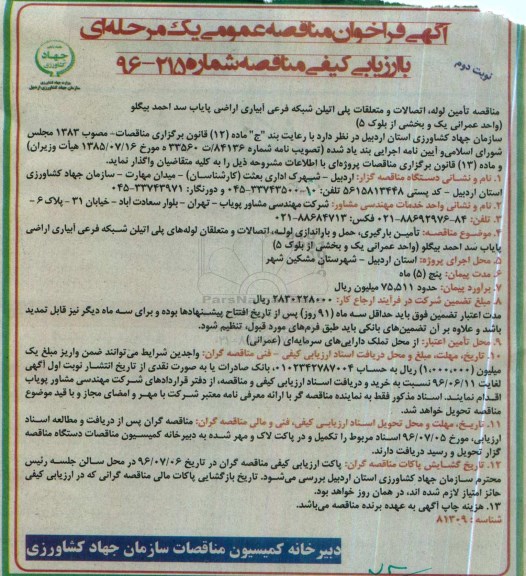 آگهی فراخوان مناقصه عمومی یک مرحله‌ای
با ارزیابی کیفی مناقصه شماره ۲۱۵-۹۶
نوبت دوم
جهاد کشاورزی
سازمان جهاد کشاورزی اردبیل
مناقصه تأمین لوله، اتصالات و متعلقات پلی اتیلن شبکه فرعی آبیاری اراضی پایاب سد احمد بیگلو
(واحد عمرانی یک و بخشی از بلوک ۵)
سازمان جهاد کشاورزی استان اردبیل در نظر دارد با رعایت بند "ج" ماده (۱۲) قانون برگزاری مناقصات- مصوب ۱۳۸۳ مجلس
شورای اسلامی و آیین نامه اجرایی بند یاد شده (تصویب نامه شماره ۸۴۱۳۶/ت ۳۳۵۶۰ ه مورخ ۱۳۸۵/۰۷/۱۶ هیأت وزیران)
و ماده (۱۳) قانون برگزاری مناقصات پروژه‌ای با اطلاعات مشروحه ذیل را به کلیه متقاضیان واگذار نماید.
۱. نام و نشانی دستگاه مناقصه گزار: اردبیل - شهرک اداری بعثت (کارشناسان) - میدان مهارت - سازمان جهاد کشاورزی
استان اردبیل - کد پستی ۵۶۱۵۸۱۳۴۴۸ تلفن: ۱۰-۳۳۷۴۳۵۰۰-۰۴۵ و دورنگار: ۳۳۷۴۳۹۷۱-۰۴۵
۲. نام و نشانی واحد خدمات مهندسی مشاور: شرکت مهندسی مشاور پویاب - تهران - بلوار سعادت آباد - خیابان ۳۱ - پلاک ۶ -
۳. تلفن: ۸۴-۸۸۶۹۲۹۷۶-۰۲۱ فکس: ۸۸۶۸۴۷۱۳-۰۲۱
۴. موضوع مناقصه: تأمین، بارگیری، حمل و باراندازی لوله، اتصالات و متعلقان لوله‌های پلی اتیلن شبکه فرعی آبیاری اراضی
پایاب سد احمد بیگلو (واحد عمرانی یک و بخشی از بلوک ۵)
۵. محل اجرای پروژه: استان اردبیل - شهرستان مشکین شهر
۶. مدت پیمان: پنج (۵) ماه
۷. برآورد پیمان: حدود ۷۵,۵۱۱ میلیون ریال
۸. مبلغ تضمین شرکت در فرآیند ارجاع کار: ۲۸۳۰۲۲۸۰۰۰ ریال
مدت اعتبار تضمین فوق باید حداقل سه ماه (۹۱ روز) پس از تاریخ افتتاح پیشنهادها بوده و برای سه ماه دیگر نیز قابل تمدید
باشد و علاوه بر آن تضمین‌های بانکی باید طبق فرم‌های مورد قبول، تنظیم شود.
۹. محل تأمین اعتبار: از محل تملک دارایی‌های سرمایه‌ای (عمرانی)
۱۰. تاریخ، مهلت، مبلغ و محل دریافت اسناد ارزیابی کیفی - فنی مناقصه گران: واجدین شرایط می‌توانند ضمن واریز مبلغ یک
میلیون (۱,۰۰۰,۰۰۰) ریال به حساب ۰۱۰۲۳۴۲۷۸۷۰۰۴ بانک صادرات یا به صورت نقدی از تاریخ انتشار نوبت اول آگهی
لغایت ۹۶/۰۶/۱۱ نسبت به خرید و دریافت اسناد ارزیابی کیفی و مناقصه، از دفتر قراردادهای شرکت مهندسی مشاور پویاب
اقدام نمایند. اسناد مذکور فقط به نماینده مناقصه گر با ارائه معرفی نامه معتبر شرکت با مهر و امضای مجاز و با قید موضوع
مناقصه تحویل خواهد شد.
۱۱. تاریخ، مهلت و محل تحویل اسناد ارزیابی کیفی، فنی و مالی مناقصه گران: مناقصه گران پس از دریافت و مطالعه اسناد
ارزیابی، مورخ ۹۶/۰۷/۰۵ اسناد مربوط را تکمیل و در پاکت لاک و مهر شده به دبیرخانه کمیسیون مناقصات دستگاه مناقصه
گزار تحویل و رسید دریافت دارند.
۱۲. تاریخ گشایش پاکات مناقصه گران: پاکت ارزیابی کیفی مناقصه گران در تاریخ ۹۶/۰۷/۰۶ در محل سالن جلسه رئیس
محترم سازمان جهاد کشاورزی استان اردبیل بررسی می‌شود. تاریخ بازگشایی پاکات مالی مناقصه گرانی که در ارزیابی کیفی
حائز امتیاز لازم شده اند، در همان روز خواهد بود.
۱۳. هزینه چاپ آگهی به عهده برنده مناقصه می‌باشد.
شناسه: ۸۱۳۰۹
دبیرخانه کمیسیون مناقصات سازمان جهاد کشاورزی